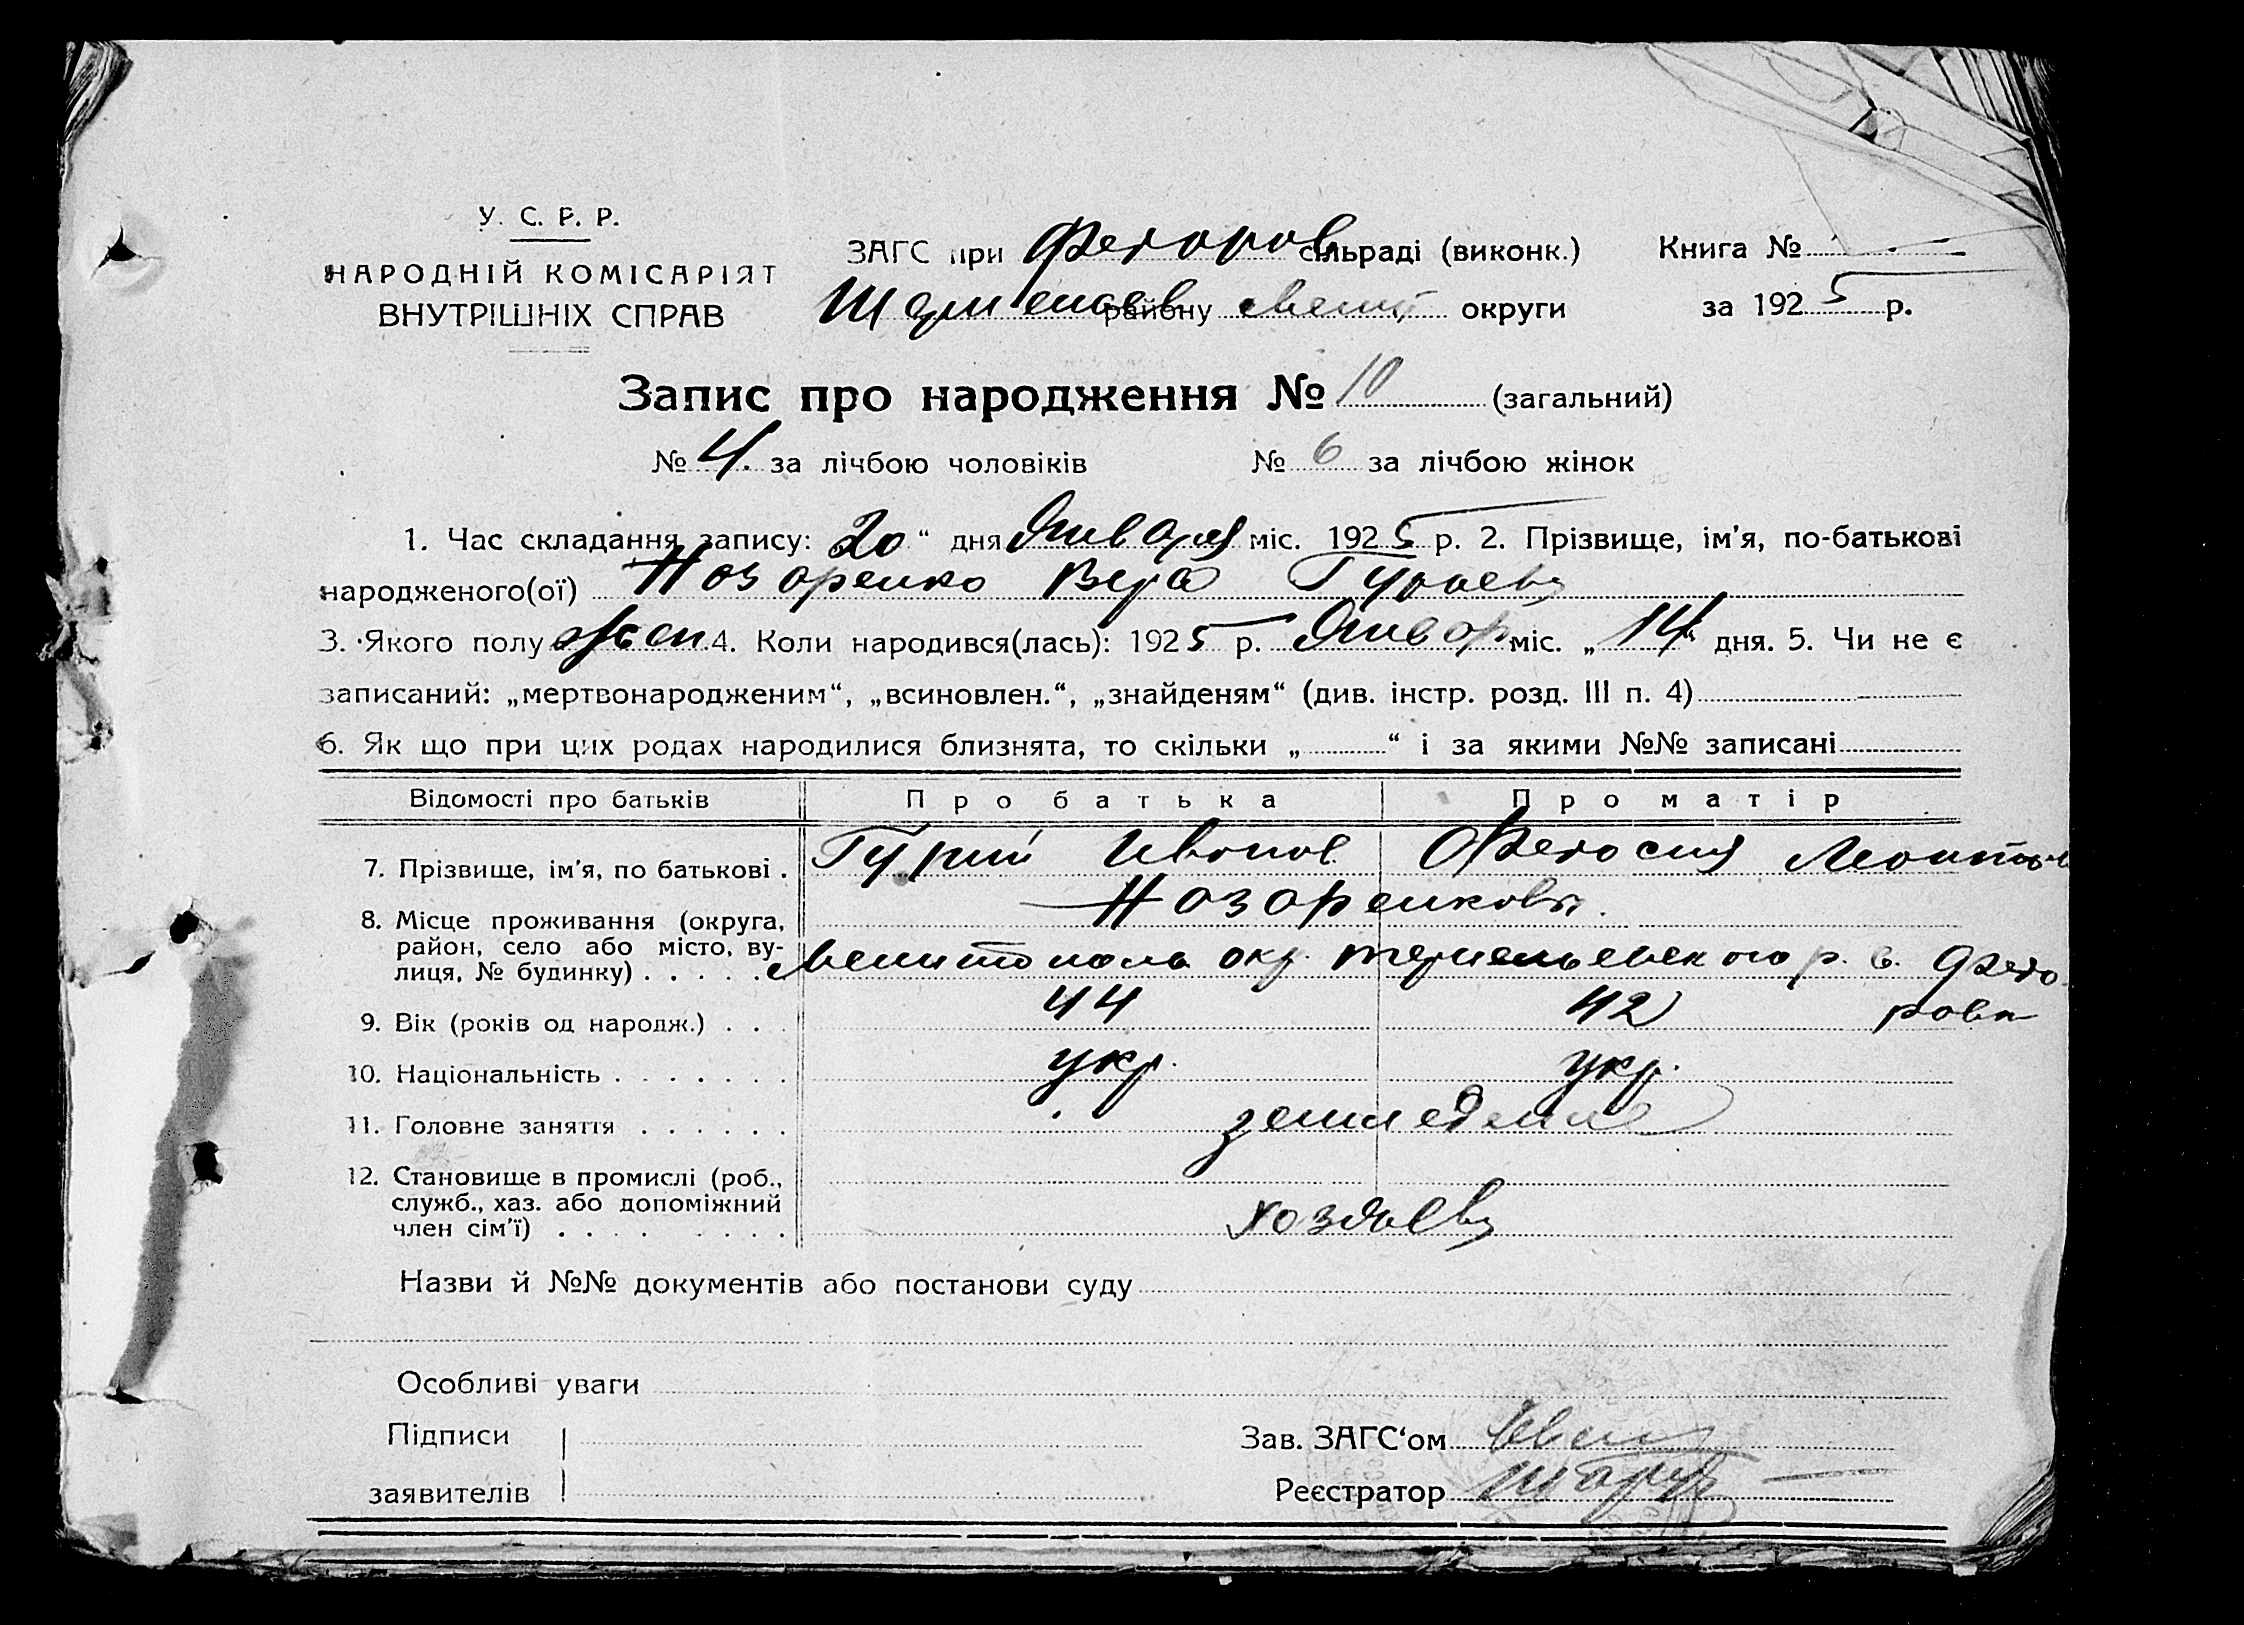 У. С. Р. Р.
НАРОДНІЙ КОМІСАРІЯТ
ВНУТРІШНІХ СПРАВ
ЗАГС при Федоров сільраді (виконк.) Книга №
району Мелит округи за 1925 р.
Запис про народження № 10 (загальний)
№ 4. за лічбою чоловіків № 6 за лічбою жінок
1. Час складання запису: 20 “ дня Января міс. 1925 р. 2. Прізвище, ім'я, по-батькові
народженого(ої) Нозоренко Вера Гурьевн
3. Якого полу жен 4. Коли народився(лась): 1925 р. Январ міс. „ 14 “ дня. 5. Чи не є
записаний: „мертвонародженим“, „всиновлен.“, „знайденям“ (див. інстр. розд. III п. 4)
6. Як що при цих родах народилися близнята, то скільки „ “ і за якими №№ записані
Відомості про батьків Про батька Про матір
7. Прізвище, ім'я, по батькові . Гурий Иванов. Федосия
Нозоренковы.
8. Місце проживання (округа,
район, село або місто, ву-
лиця, № будинку) . . . . . Мелитополь окр. р. с. Федо-
рова
9. Вік (років од народж.) . . . 44 42
10. Національність . . . . . . . укр. укр.
11. Головне заняття . . . . . . земледелие
12. Становище в промислі (роб.,
служб., хаз. або допоміжний
член сім'ї) . . . . . . . . хозяев
Назви й №№ документів або постанови суду
Особливі уваги
Підписи
заявителів
Зав. ЗАГС‘ом
Реєстратор